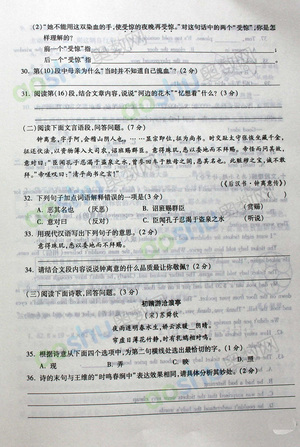 (2)"她不能用这双染血的手,使受惊的夜晚再受惊。"对这句话中的两个"受惊",你是怎样理解的?
前一个"受惊"指
后一个"受惊"指
30. 第(10)段中母亲为什么"当时并不知道自己流血"?(2分)
31. 阅读第(16)段,结合文章内容,说说"河边的花木""忆想着"什么?(3分)
(二)阅读下面文言语段,回答问题。(7分)
钟离意,字子阿,会稽山阴人也。
征还伏法,以资物簿入大司农,诏班赐群臣。意得珠玑,悉以委地而不拜赐。帝怪而问其故,
意对曰:"臣闻孔子忍渴于盗泉之水,曾参回车于胜母之闾,恶其名也。此臧秽之宝,诚不敢
拜。"帝嗟叹曰:"清乎尚书之言!"
《后汉书·钟离意传》
32. 下列句子加点词语解释错误的一项是(3分)
A. 恶其名也 (厌恶) B. 诏班赐群臣 (赏赐)
C. 意得珠玑 D. 臣闻孔子忍渴于盗泉之水
33. 用现代汉语写出下列句子的意思。(2分)
意得珠玑,悉以委地而不拜赐。
34. 请结合文段内容说说钟离意的什么品质最让你敬佩?(2分)
(三)阅读下面诗歌,回答问题。
初晴游沧浪亭
[宋]苏舜钦
夜雨连明春水生,娇云浓暖
帘虚日薄花竹静,时有乳鸠相对鸣。
35. 根据诗意从下面四个选项中,为第二句横线处选出最恰切的字。(1分)
A. 现 B. 弄 C. 映 D. 照
36. 诗的末句与王维的"时鸣春涧中"表达效果相同,请具体分析其妙处。(2分)